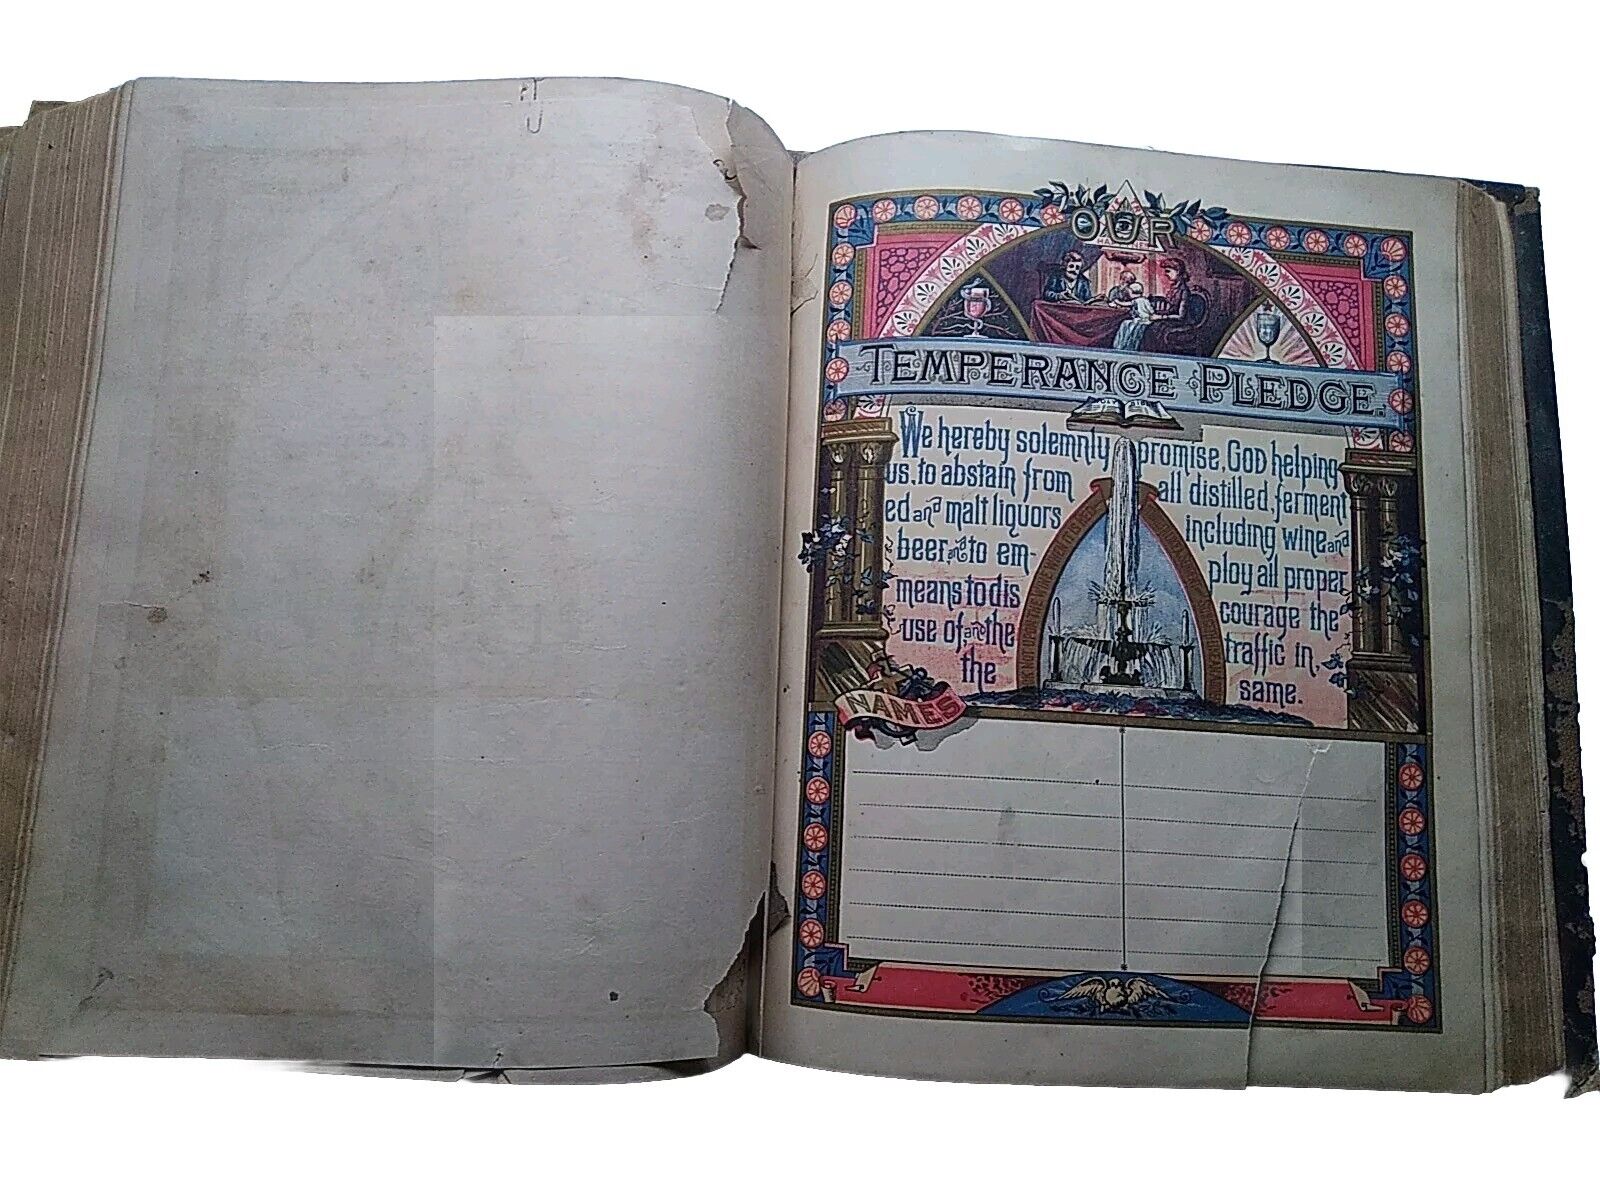 OUR
TEMPERANCE PLEDGE.
HOLY BIBLE
We hereby solemnly promise, GOD helping
us, to abstain from all distilled, ferment
ed and malt liquors including wine and
beer, and to em- ploy all proper
means to dis courage the
use of, and the traffic in,
the same.
NAMES